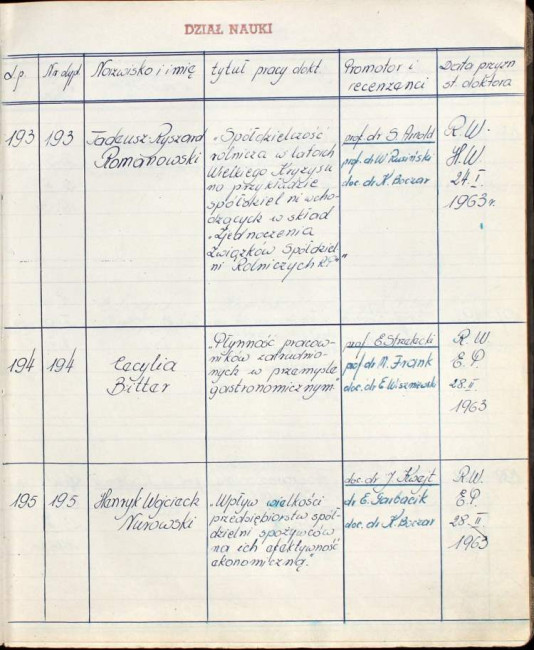 DZIAŁ NAUKI
L.p. Nr dypl. Nazwisko i imię tytuł pracy dokt. Promotor i recenzenci Data przyzn st. doktora
193 193 Tadeusz Ryszard Romanowski
„Spółdzielczość
rolnicza w latach
Wielkiego Kryzysu
na przykładzie
spółdzielni wcho-
dzących w skład
„Zjednoczenia
Związków Spółdziel-
ni Rolniczych R.P.""
prof. dr S. Arnold
prof. dr W. Rusiński
doc. dr K. Boczar
R. W.
H. W
24. I.
1963 r.
194 194 Cecylia Bitter
„Płynność pracow-
ników zatrudnio-
nych w przemyśle
gastronomicznym"
prof. E. Strzelecki
prof. dr M. Frank
doc. dr E. Wiszniewski
R. W
E. P.
28. II.
1963
195 195 Henryk Wojciech Nurowski
„Wpływ wielkości
przedsiębiorstw spół-
dzielni spożywców
na ich efektywność
ekonomiczną."
doc. dr J. Kwejt
dr E. Garbacik
doc. dr K. Boczar
R. W.
E P
28. II
1963